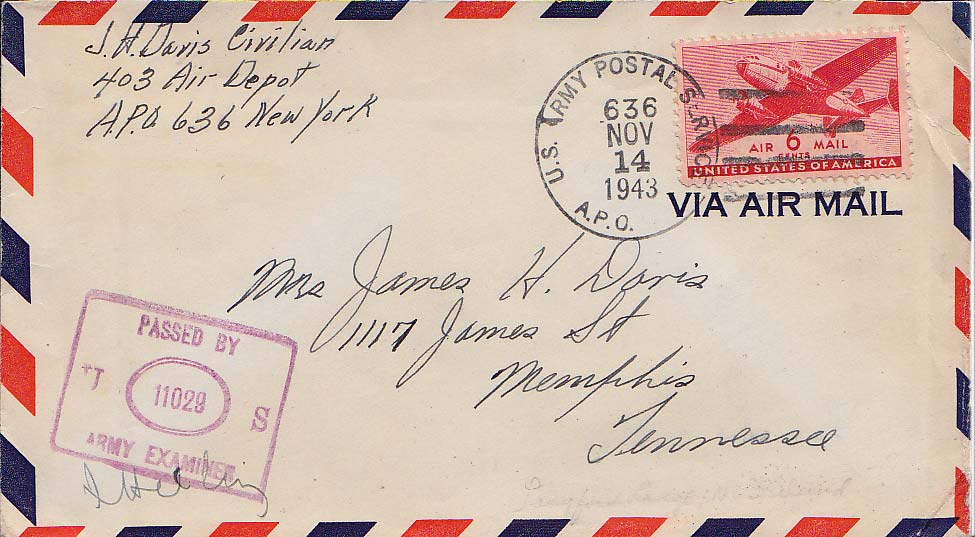 J. H. Davis Civilian
403 Air Depot
A.P.O 636 New York
U.S. ARMY POSTAL SERVICE
636
NOV
14
1943
A.P.O.
AIR 6 MAIL
CENTS
UNITED STATES OF AMERICA
VIA AIR MAIL
Mrs James H. Davis
1117 James St
Memphis
Tennessee
PASSED BY
11029
S
ARMY EXAMINER